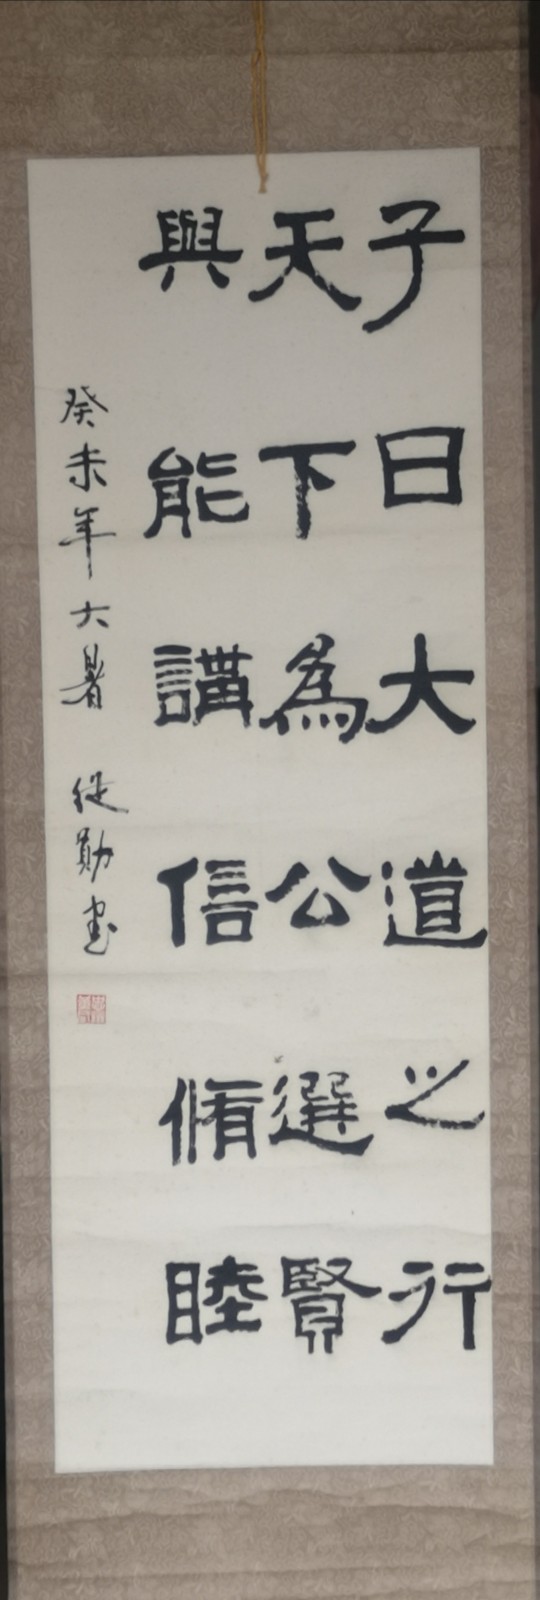 子曰大道之行
天下為公選賢
與能講信脩睦
癸未年大暑 從勛書